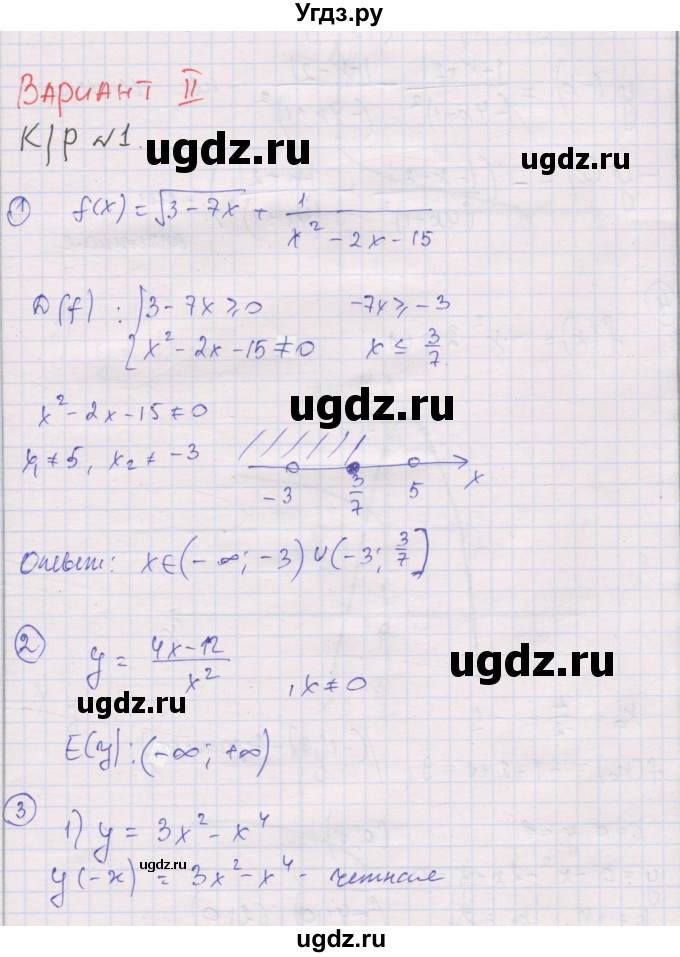 Угдз.ру
Вариант II
К/р №1.
ugdz.ru
ugdz.ru
① f(x) = √3 - 7x + 1/(x² - 2x - 15)
D(f) : { 3 - 7x ≥ 0     -7x ≥ -3
{ x² - 2x - 15 ≠ 0     x ≤ 3/7
x² - 2x - 15 ≠ 0
ugdz.ru
ugdz.ru
x₁ ≠ 5, x₂ ≠ -3
-3 3/7 5 x
Ответ: x ∈ (-∞; -3) ∪ (-3; 3/7]
② y = (4x - 12)/x² , x ≠ 0
ugdz.ru
ugdz.ru
E(y): (-∞; +∞)
③ 1) y = 3x² - x⁴
ugdz.ru
y(-x) = 3x² - x⁴ - четная
ugdz.ru
ugdz.ru